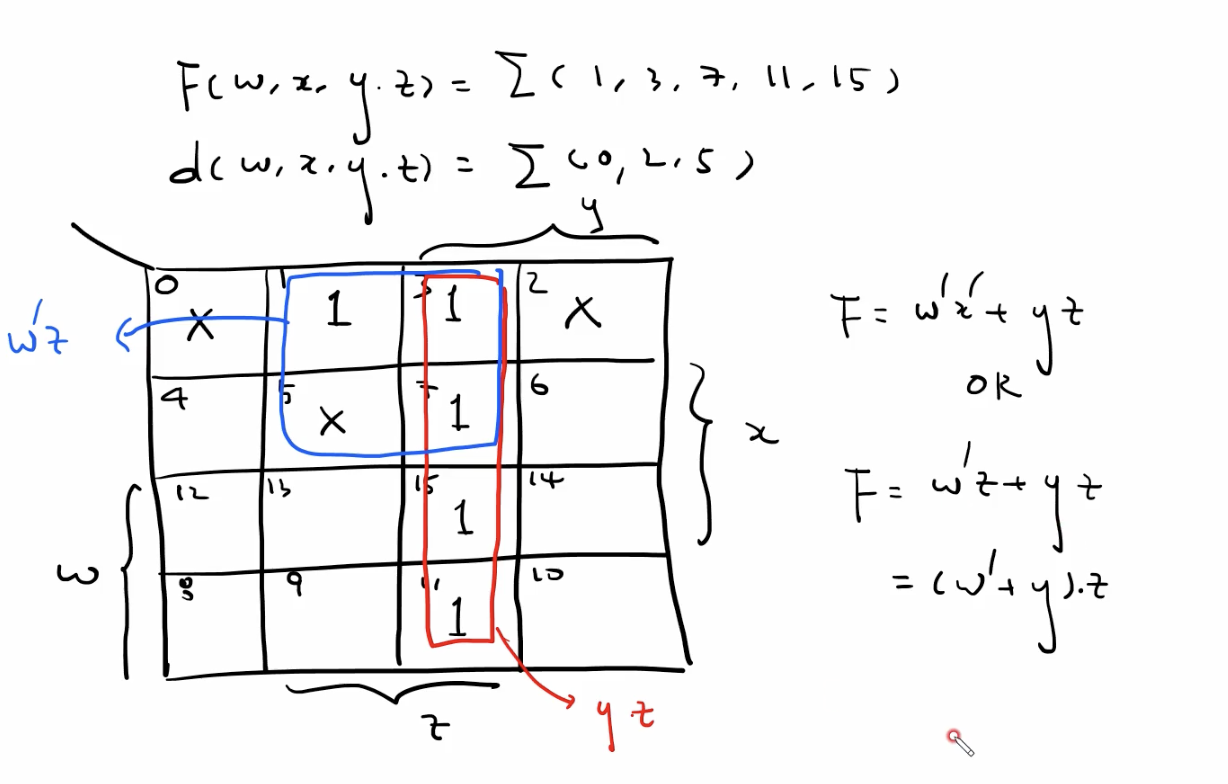 F(w, x, y. z) = Σ( 1, 3, 7, 11, 15)
d(w, x, y. z) = Σ (0, 2. 5)
y
0 X 1 1 3 1 2 X
w'z
4 5 X 7 1 6
x
12 13 15 1 14
w
8 9 11 1 10
z
yz
F = w'x' + yz
OR
F = w'z + yz
= (w' + y).z